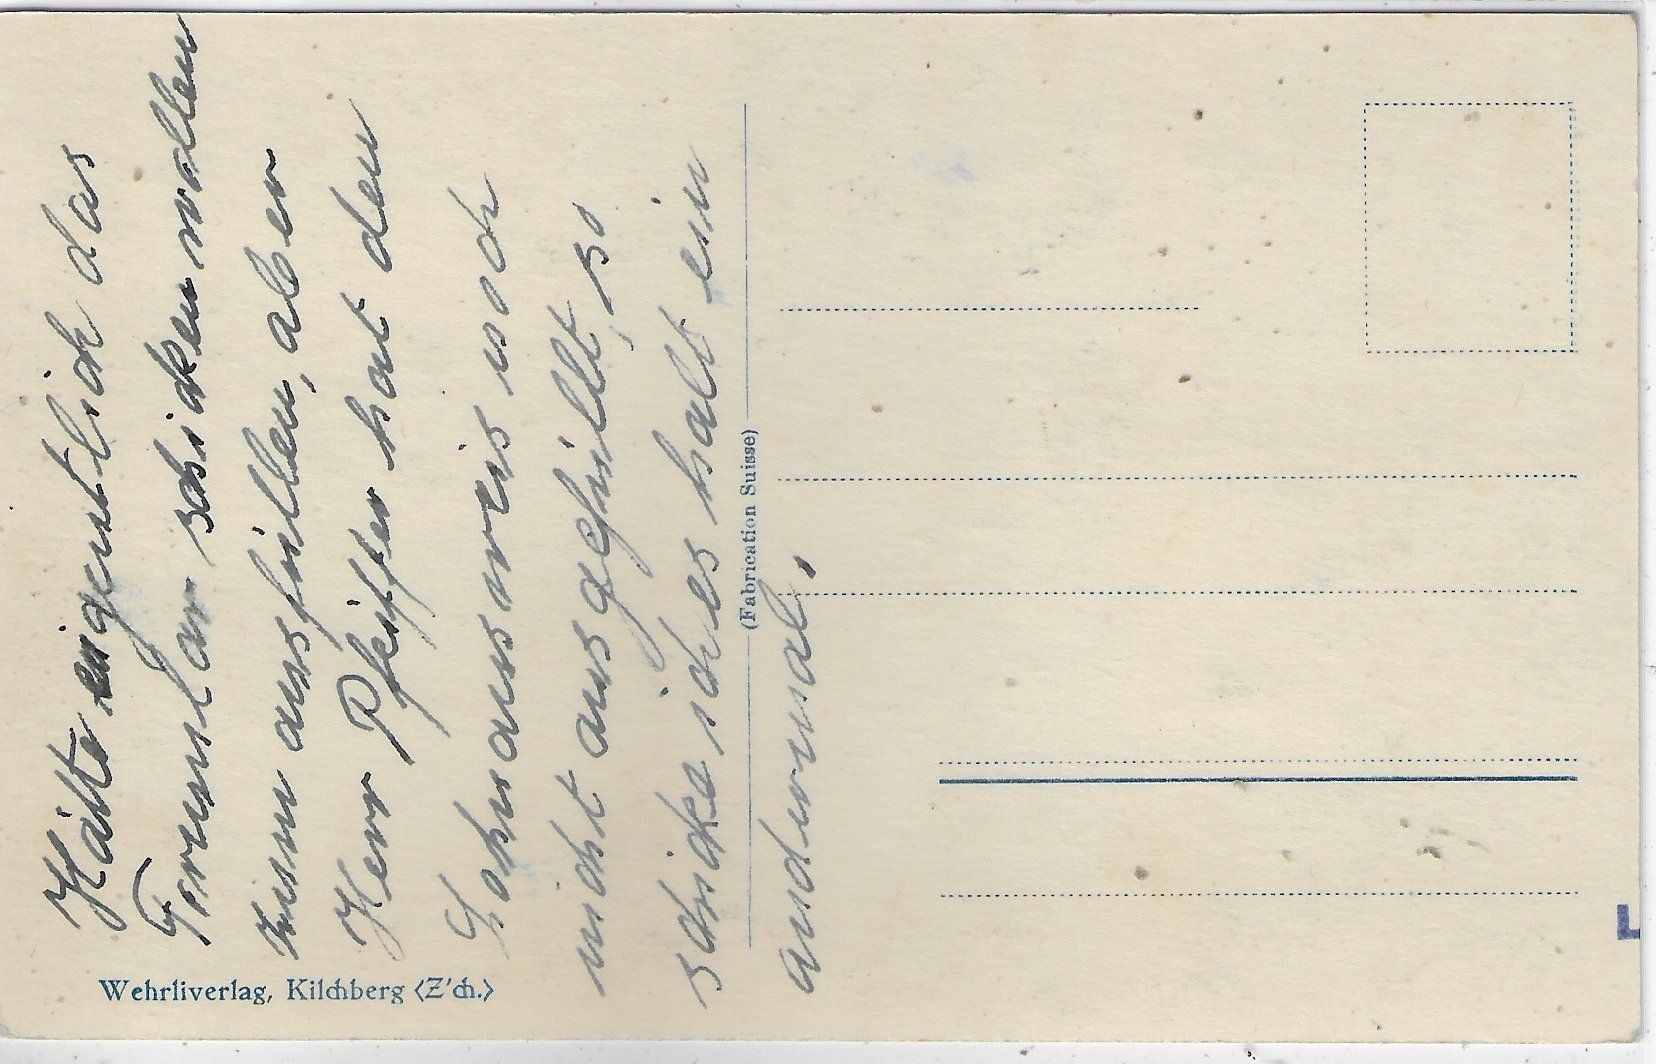 Hätte eigentlich das
Formular schicken wollen
zum ausfüllen, aber
Herr Pfeiffer hat den
Lohnausweis noch
nicht ausgefüllt, so
schicke ich es halt ein
andermal.
(Fabrication Suisse)
Wehrliverlag, Kilchberg (Z'ch.)
L